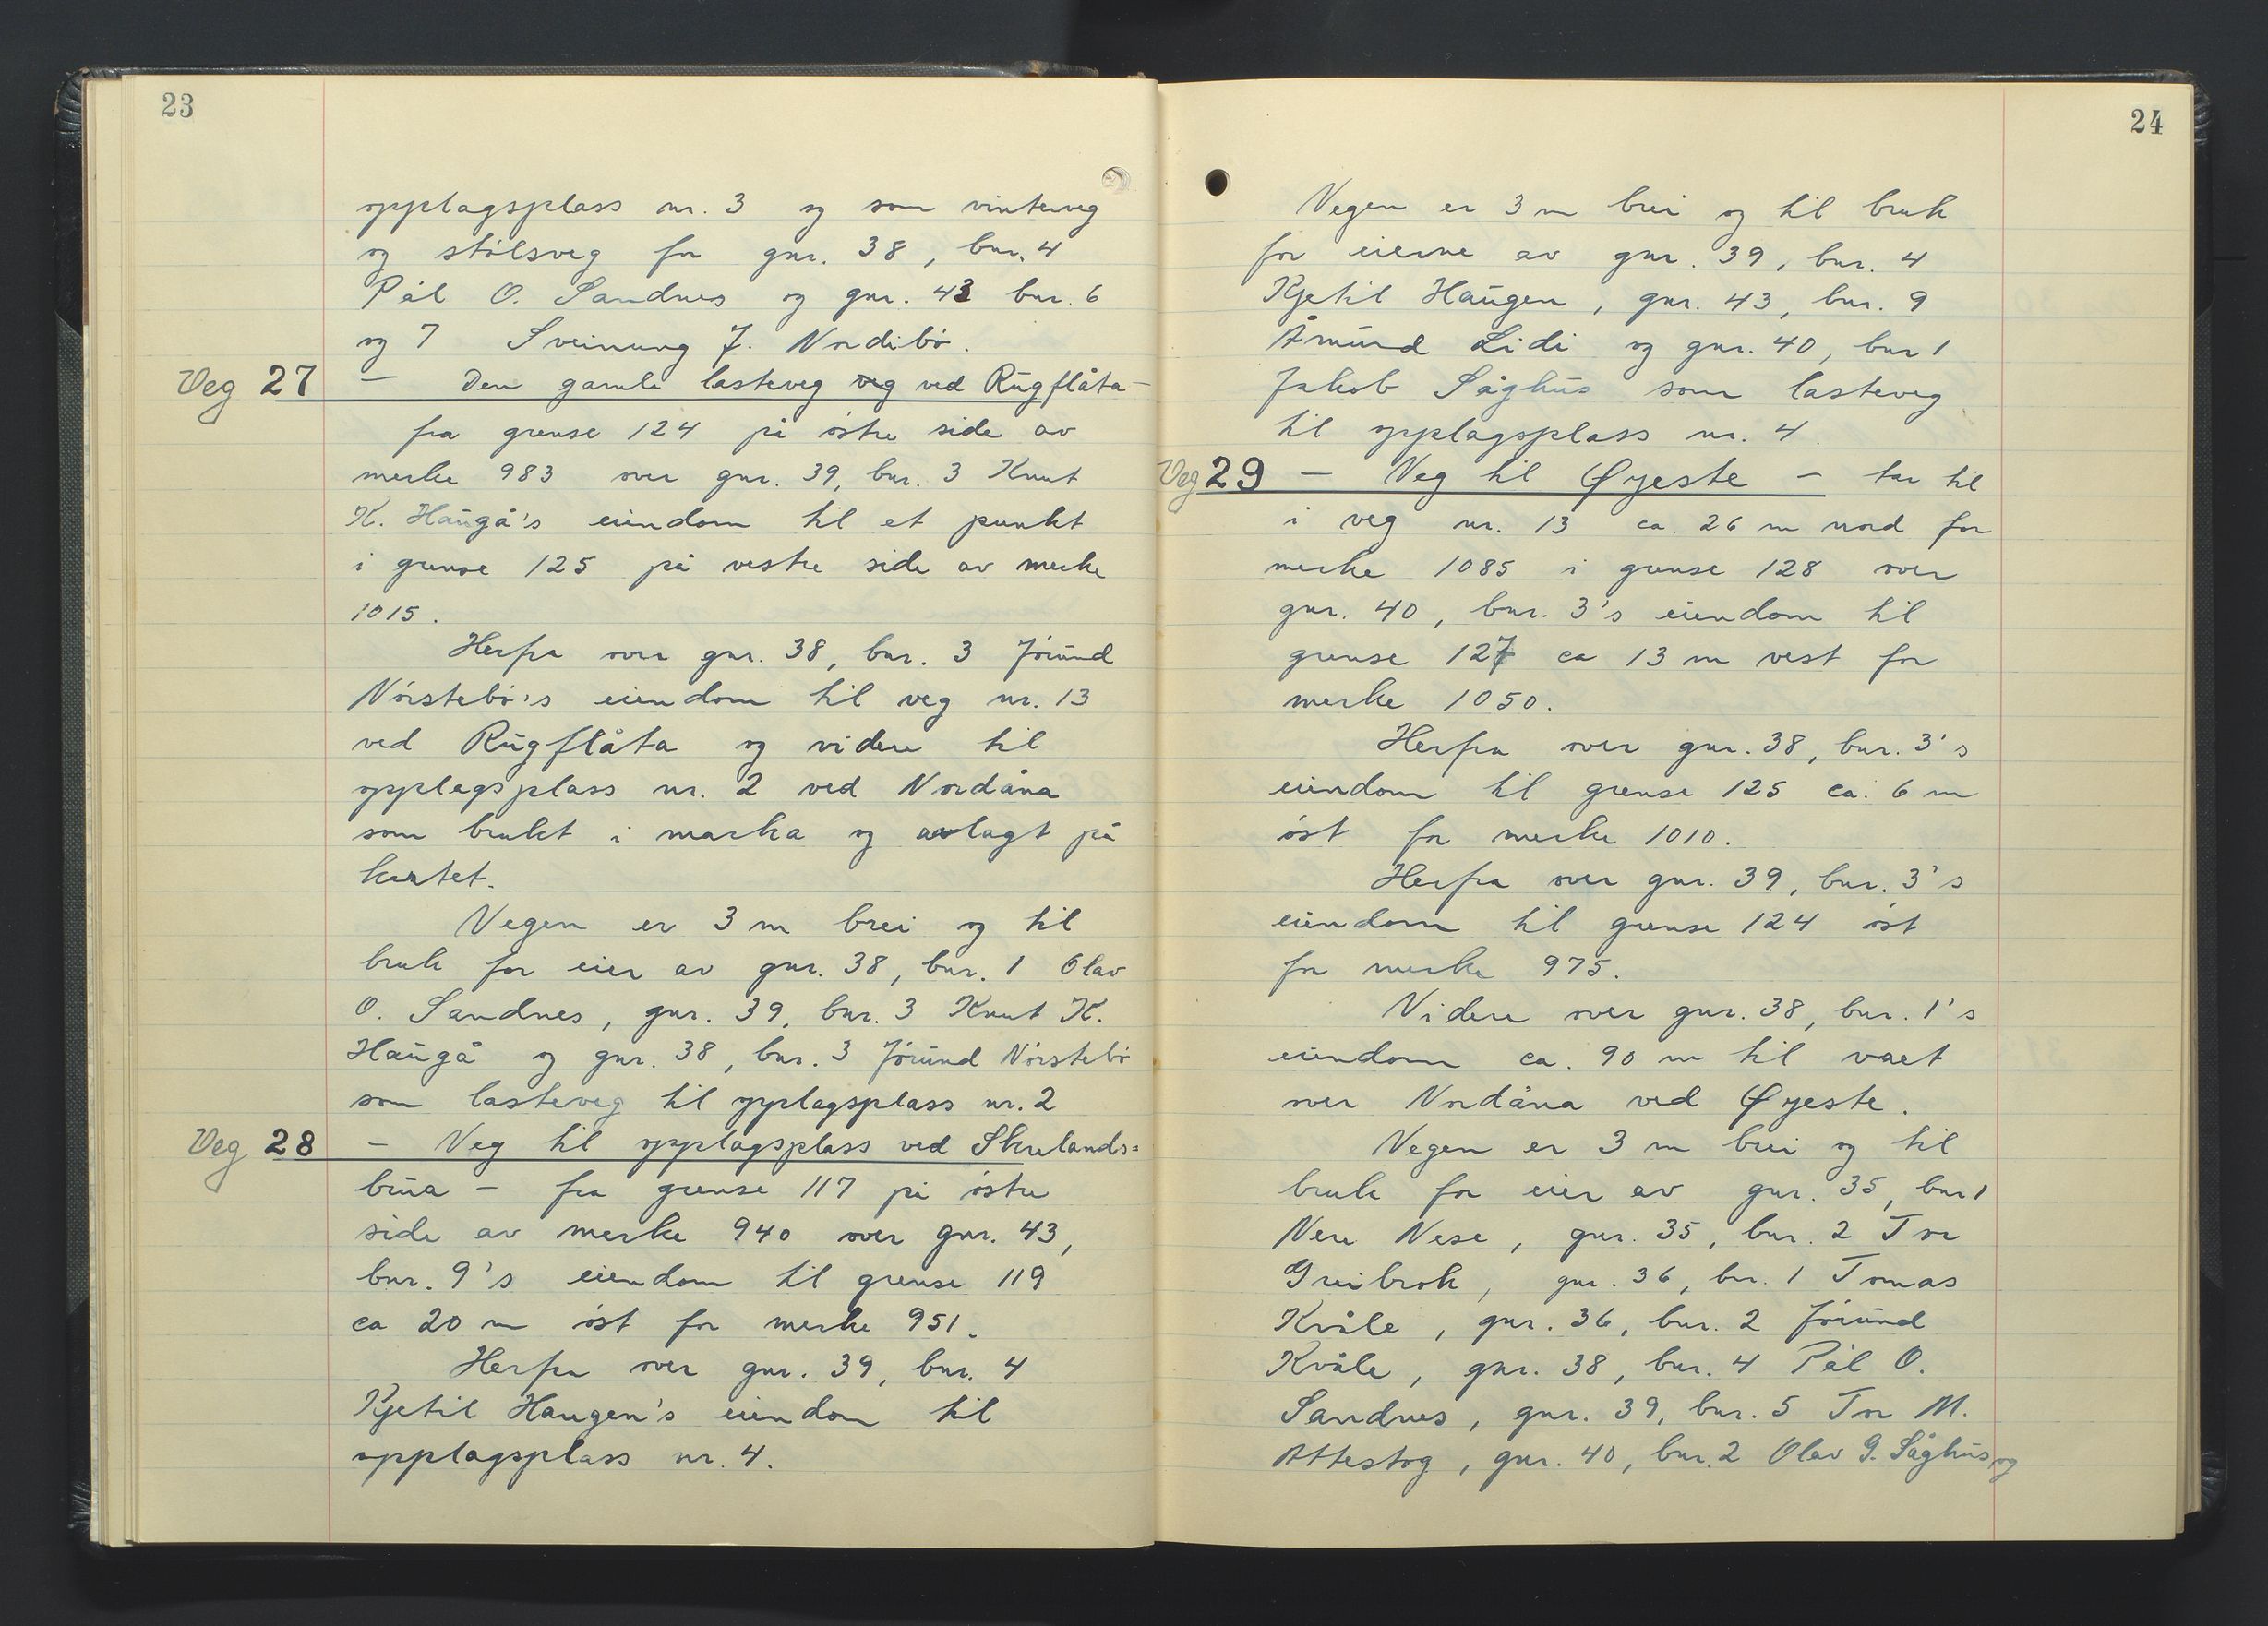 23
opplagsplass nr. 3 og som vinterveg
og stølsveg for gnr. 38, bnr. 4
Pål O. Sandnes og gnr. 43 bnr. 6
og 7 Sveinung J. Nordibø.
Veg 27 - Den gamle lasteveg veg ved Rugflåta -
fra grense 124 på østre side av
merke 983 over gnr. 39, bnr. 3 Knut
K. Haugå's eiendom til et punkt
i grense 125 på vestre side av merke
1015.
Herfra over gnr. 38, bnr. 3 Jórund
Nórstebø's eiendom til veg nr. 13
ved Rugflåta og videre til
opplagsplass nr. 2 ved Nordåna
som brukt i marka og avlagt på
kartet.
Vegen er 3 m brei og til
bruk for eier av gnr. 38, bnr. 1 Olav
O. Sandnes, gnr. 39, bnr. 3 Knut K.
Haugå og gnr. 38, bnr. 3 Jórund Nórstebø
som lasteveg til opplagsplass nr. 2
Veg 28 - Veg til opplagsplass ved Skrelands=
brua - fra grense 117 på østre
side av merke 940 over gnr. 43,
bnr. 9's eiendom til grense 119
ca 20 m øst for merke 951.
Herfra over gnr. 39, bnr. 4
Kjetil Haugen's eiendom til
opplagsplass nr. 4.
24
Vegen er 3 m brei og til bruk
for eierne av gnr. 39, bnr. 4
Kjetil Haugen, gnr. 43, bnr. 9
Åmund Lidi og gnr. 40, bnr 1
Jakob Såghus som lasteveg
til opplagsplass nr. 4.
Veg 29 - Veg til Øyeste - tar til
i veg nr. 13 ca. 26 m nord for
merke 1085 i grense 128 over
gnr. 40, bnr. 3's eiendom til
grense 127 ca 13 m vest for
merke 1050.
Herfra over gnr. 38, bnr. 3's
eiendom til grense 125 ca. 6 m
øst for merke 1010.
Herfra over gnr. 39, bnr. 3's
eiendom til grense 124 øst
for merke 975.
Videre over gnr. 38, bnr. 1's
eiendom ca. 90 m til vaet
over Nordåna ved Øyeste.
Vegen er 3 m brei og til
bruk for eier av gnr. 35, bnr 1
Nere Nese, gnr. 35, bnr. 2 Tor
Greibrok, gnr. 36, bnr. 1 Tomas
Kvåle, gnr. 36, bnr. 2 Jórund
Kvåle, gnr. 38, bnr. 4 Pål O.
Sandnes, gnr. 39, bnr. 5 Tor M.
Attestog, gnr. 40, bnr. 2 Olav G. Såghus og